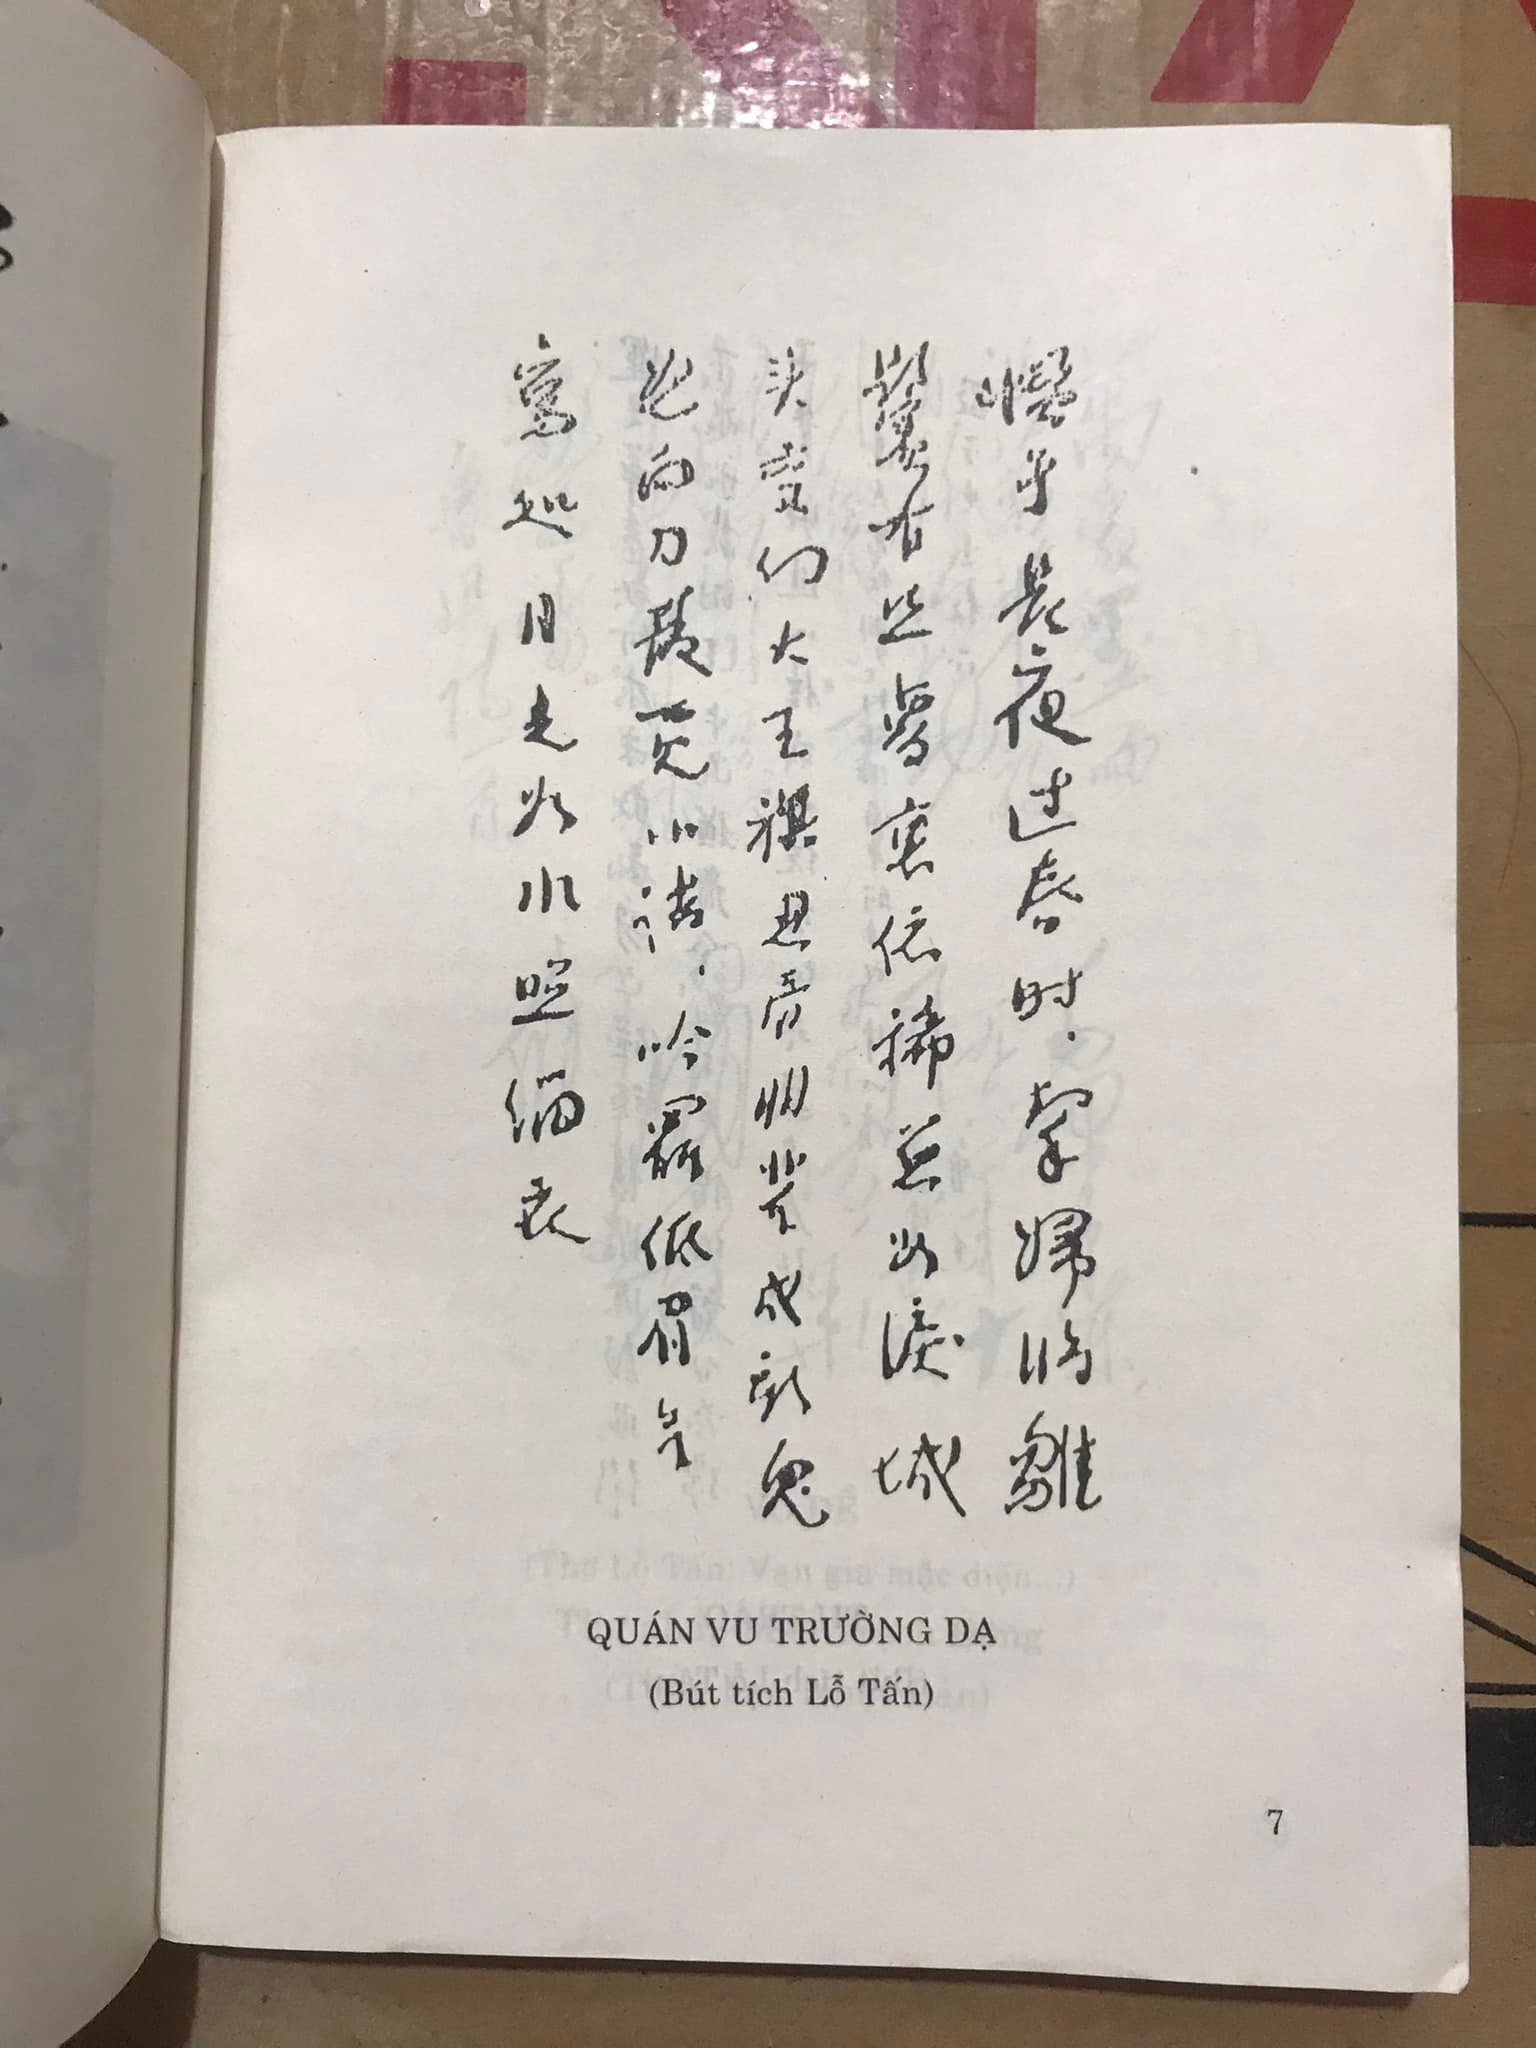 慣于長夜過春时.挈婦將雛
鬢有丝夢裏依稀慈母淚城
头變幻大王旗忍看朋輩成新鬼
怒向刀叢覓小詩.吟罷低眉无
寫處月光如水照緇衣
QUÁN VU TRƯỜNG DẠ
(Bút tích Lỗ Tấn)
7